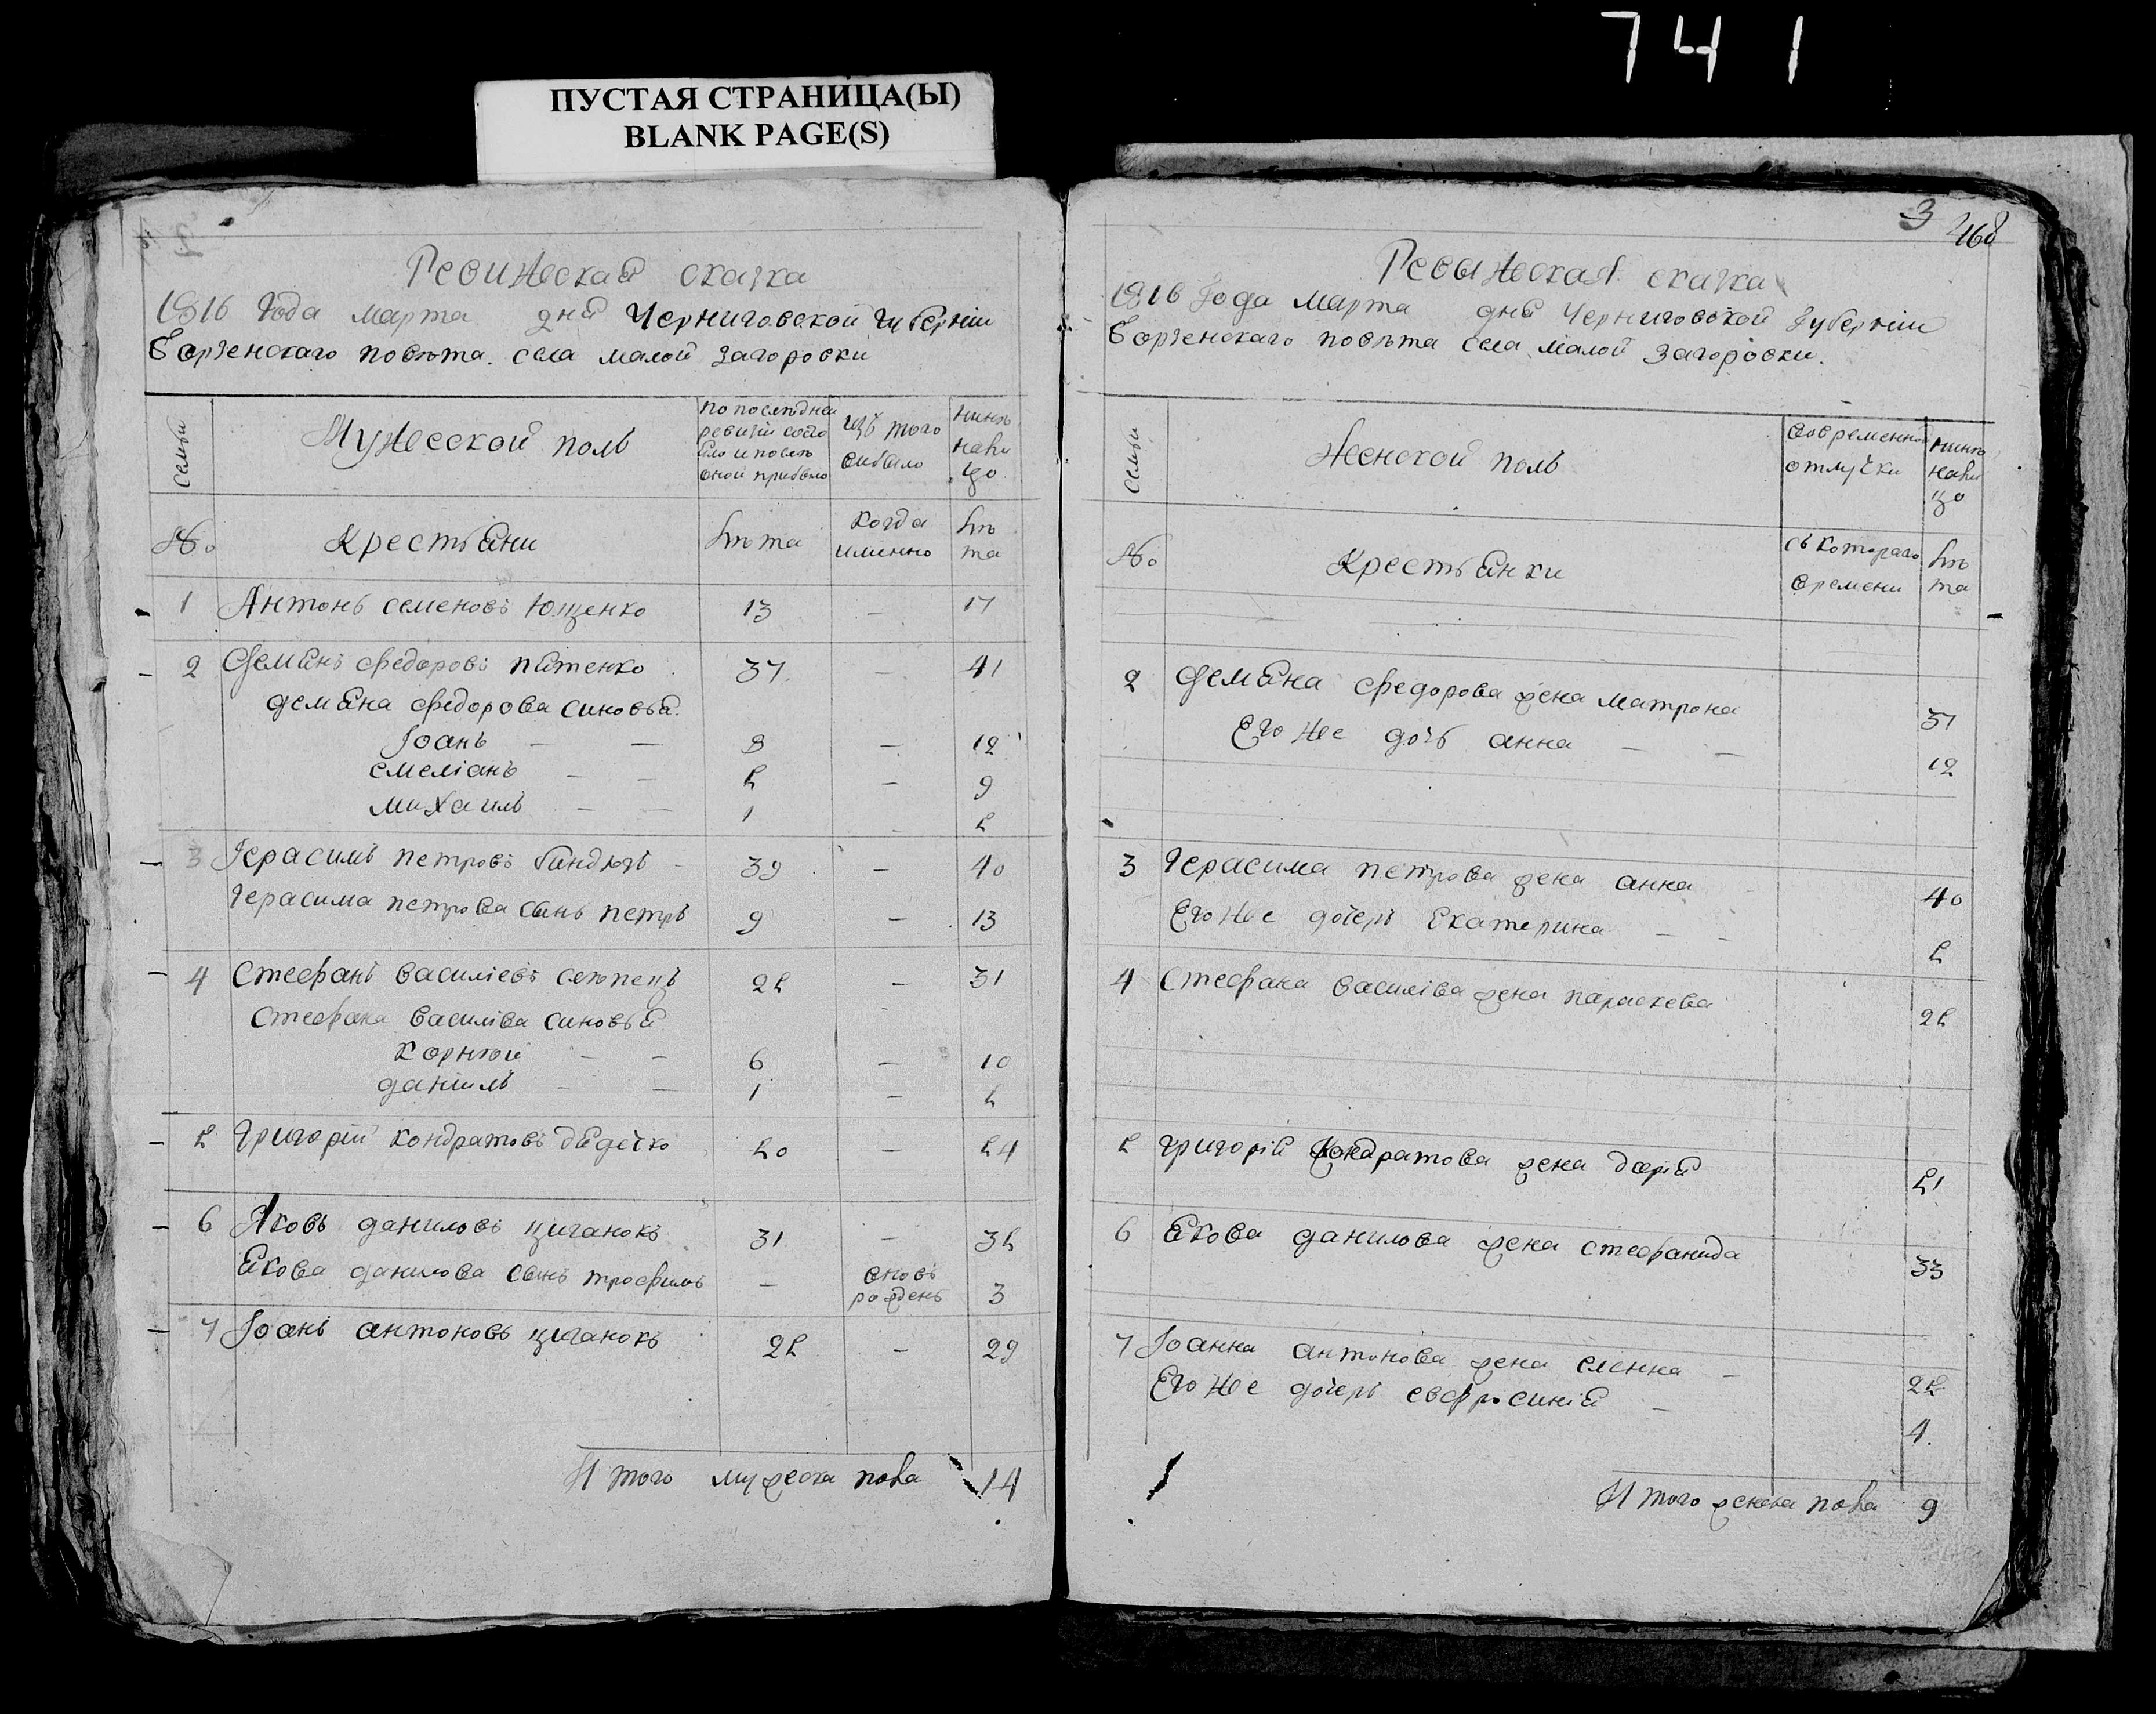 741
ПУСТАЯ СТРАНИЦА(Ы)
BLANK PAGE(S)
Ревижская сказка
1816 Года марта дня Черниговской губерніи
Борзенскаго повѣта. села малой загоровки
семьи
Мужеской полъ
по последней ревизіи состояло и после оной прибыло
Изъ того выбыло
нинѣ налицо
№
Крестьяни
Лѣта
когда именно
Лѣта
1 Антонъ семеновъ Ющенко 13 — 17
2 Демянъ федоровъ пятенко 37 — 41
демяна федорова синовья
Іоанъ — — 8 — 12
емеліанъ — — 5 — 9
михаилъ — — 1 — 5
3 Герасимъ петровъ биндюгъ 39 — 40
Герасима петрова сынъ петръ 9 — 13
4 Стефанъ василіевъ слепецъ 25 — 31
Стефана василіва синовья
корнюй — — 6 — 10
даніилъ — — 1 — 5
5 Григорій кондратовъ дядечко 50 — 54
6 Яковъ даниловъ циганокъ 31 — 35
Якова данилова сынъ трофимъ — вновь рожденъ 3
7 Іоанъ антоновъ циганокъ 25 — 29
И того мужеска пола 14
3
468
Ревижская сказка
1816 Года марта дня Черниговской Губерніи
Борзенскаго повѣта села малой загоровки.
семьи
Женской полъ
Вовременной отлучки
нинѣ налицо
№
Крестьянки
съ котораго времени
Лѣта
2 Демяна федорова жена матрона 37
Его же дочь анна — — 12
3 Герасима петрова жена анна 40
Его же дочеръ Екатерина — — 5
4 Стефана василіва жена параскева 25
5 Григорія Кондратова жена дарія 51
6 Якова данилова жена стефанида 33
7 Іоанна антонова жена еленна — 25
Его же дочеръ евфросинія — 4.
И того женска пола 9